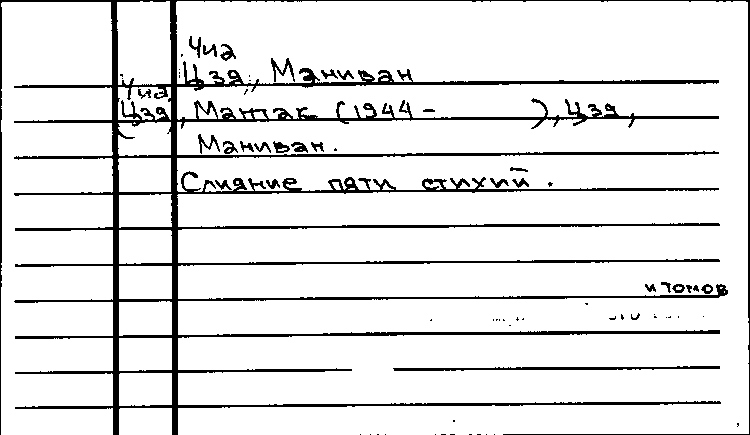 Чиа
Цзя, Маниван
Чиа
(Цзя), Мантак (1944-          ), Цзя,
Маниван.
Слияние пяти стихий.
и томов